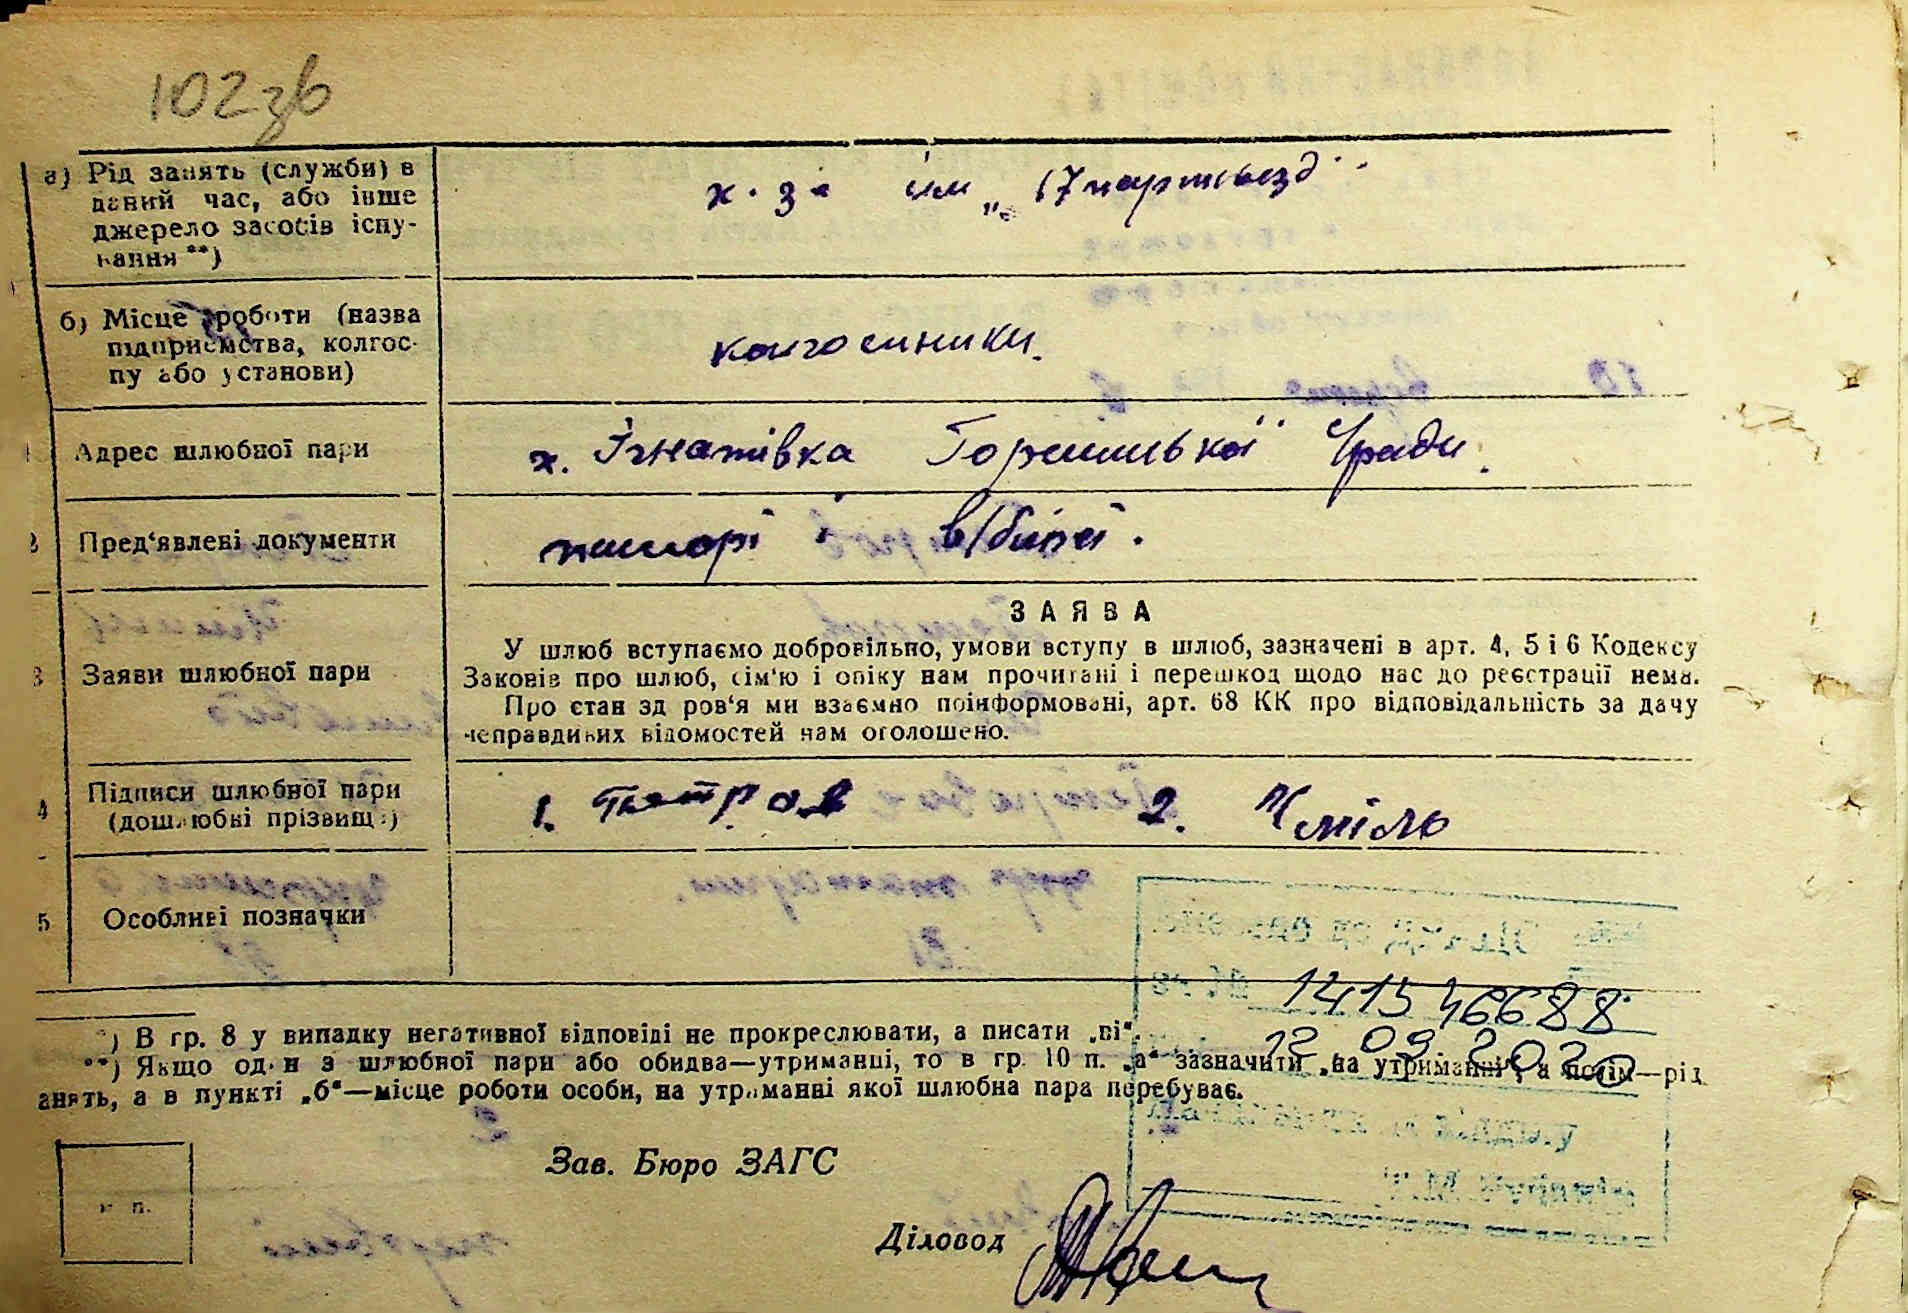 102зв
а) Рід занять (служби) в
даний час, або інше
джерело засобів існу-
вання **)
х. з. им „17 партьезд"
б) Місце роботи (назва
підприємства, колгос-
пу або установи)
колгоспники.
1 Адрес шлюбної пари
х. Ігнатівка Горошицької с/ради.
2 Пред'явлені документи
паспорт і в/білет.
ЗАЯВА
3 Заяви шлюбної пари
У шлюб вступаємо добровільно, умови вступу в шлюб, зазначені в арт. 4, 5 і 6 Кодексу
Законів про шлюб, сім'ю і опіку нам прочитані і перешкод щодо нас до реєстрації нема.
Про стан здоров'я ми взаємно поінформовані, арт. 68 КК про відповідальність за дачу
неправдивих відомостей нам оголошено.
4 Підписи шлюбної пари
(дошлюбні прізвища)
1. Петров 2. Хміль
5 Особливі позначки
14 15 46688
12 09 202
*) В гр. 8 у випадку негативної відповіді не прокреслювати, а писати „ні".
**) Якщо один з шлюбної пари або обидва—утриманці, то в гр. 10 п. „а" зазначити „на утриманні", а потім—рід
анять, а в пункті „б"—місце роботи особи, на утриманні якої шлюбна пара перебуває.
Зав. Бюро ЗАГС
м п.
Діловод